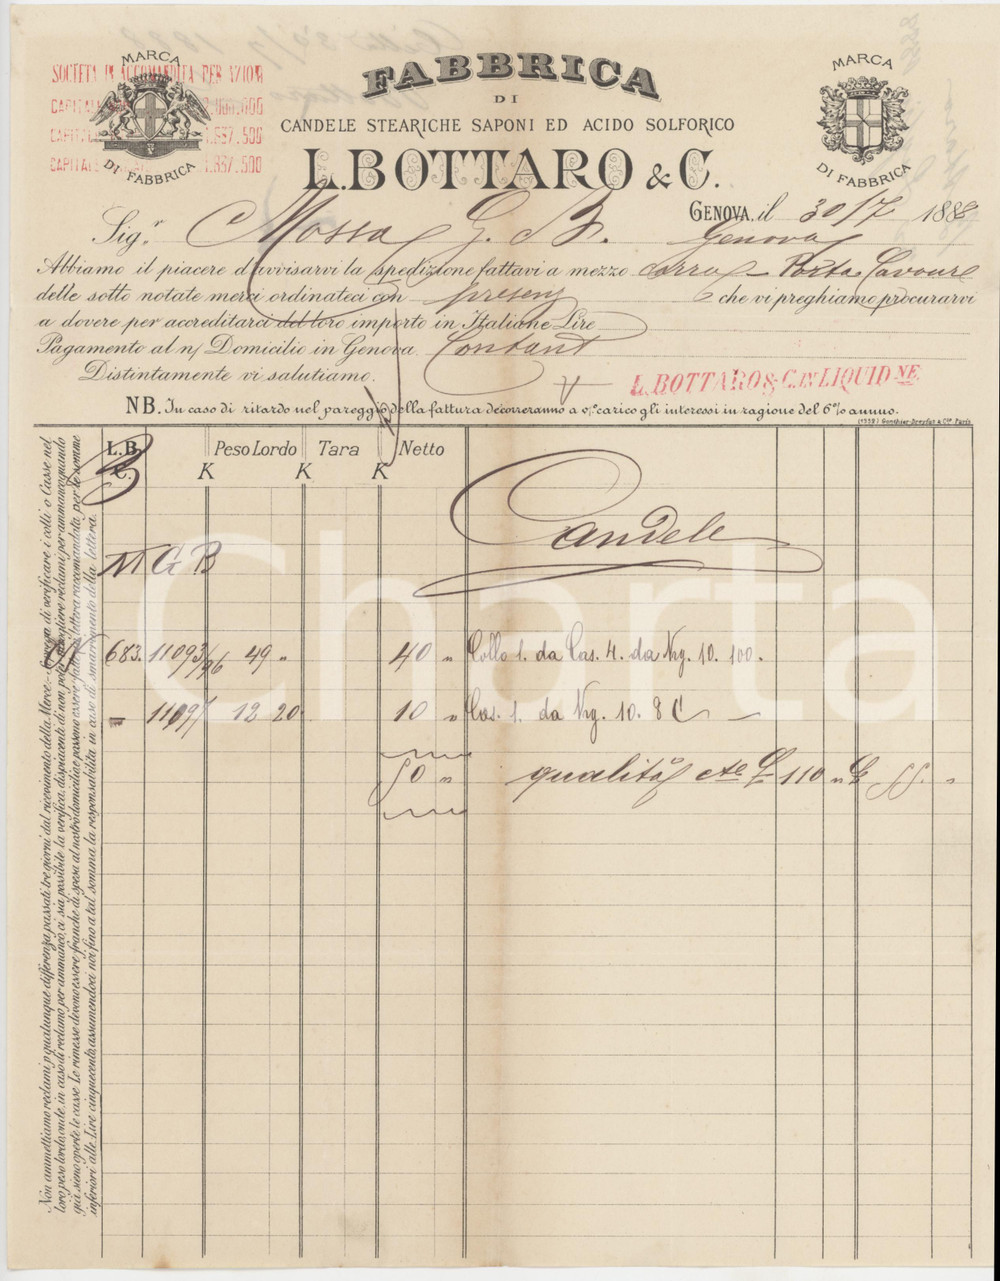 MARCA
DI FABBRICA
SOCIETÀ IN ACCOMANDITA PER AZIONI
FABBRICA
DI
CANDELE STEARICHE SAPONI ED ACIDO SOLFORICO
L. BOTTARO & C.
MARCA
DI FABBRICA
GENOVA, il 30/7 1888
Sig.r Mossa G. B. Genova
Abbiamo il piacere d'avvisarvi la spedizione fattavi a mezzo carro Porta Cavour
delle sotto notate merci ordinateci con presenz che vi preghiamo procurarvi
a dovere per accreditarci del loro importo in Italiane Lire
Pagamento al n/ Domicilio in Genova. Contant
Distintamente vi salutiamo.
L. BOTTARO & C. IN LIQUID NE.
NB. In caso di ritardo nel pareggio della fattura decorreranno a v/o carico gli interessi in ragione del 6% annuo.
(1328) Gonthier-Dreyfus & Cie Paris
L.B. Peso Lordo Tara Netto
C. K K K
Candele
M G B
683. 11093/96 49 „ 40 „ Collo 1. da Cas. 4. da Kg. 10. 100.
11097 12 20 10 „ Cas. 1. da Kg. 10. 8 C
50 „ qualità £ 110 „ £ 55. „
Non ammettiamo reclami p qualunque differenza, passati tre giorni dal ricevimento della Merce._ Cercga di verificare i colli o Casse nel
loro peso lordo, onde in caso di reclamo per ammanco, ci sia possibile la verifica, dispiacenti di non poter accogliere reclami per ammanco, quando
già sieno aperte le casse. Le rimesse devono essere franche di spesa al nostro domicilio e possono essere fatte in lettera raccomandata per le somme
inferiori alle Lire cinquecento, assumendoci noi fino a tal somma la responsabilità in caso di smarrimento della lettera.
Charta